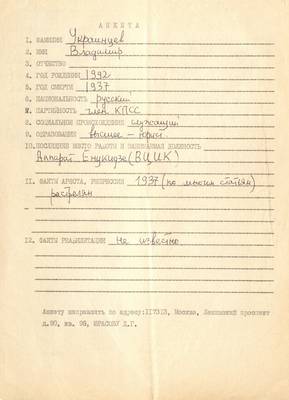 АНКЕТА
1. ФАМИЛИЯ Украинцев
2. ИМЯ Владимир
3. ОТЧЕСТВО
4. ГОД РОЖДЕНИЯ 1992
5. ГОД СМЕРТИ 1937
6. НАЦИОНАЛЬНОСТЬ русский
7. ПАРТИЙНОСТЬ член КПСС
8. СОЦИАЛЬНОЕ ПРОИСХОЖДЕНИЕ служащий
9. ОБРАЗОВАНИЕ высшее —
10. ПОСЛЕДНЕЕ МЕСТО РАБОТЫ И ЗАНИМАЕМАЯ ДОЛЖНОСТЬ
Аппарат Енукидзе (ВЦИК)
11. ФАКТЫ АРЕСТА, РЕПРЕССИИ 1937 (по статьям)
расстрелян
12. ФАКТЫ РЕАБИЛИТАЦИИ Не известно
Анкету направлять по адресу: 117313, Москва, Ленинский проспект
д.90, кв. 96, ЮРАСОВУ Д.Г.